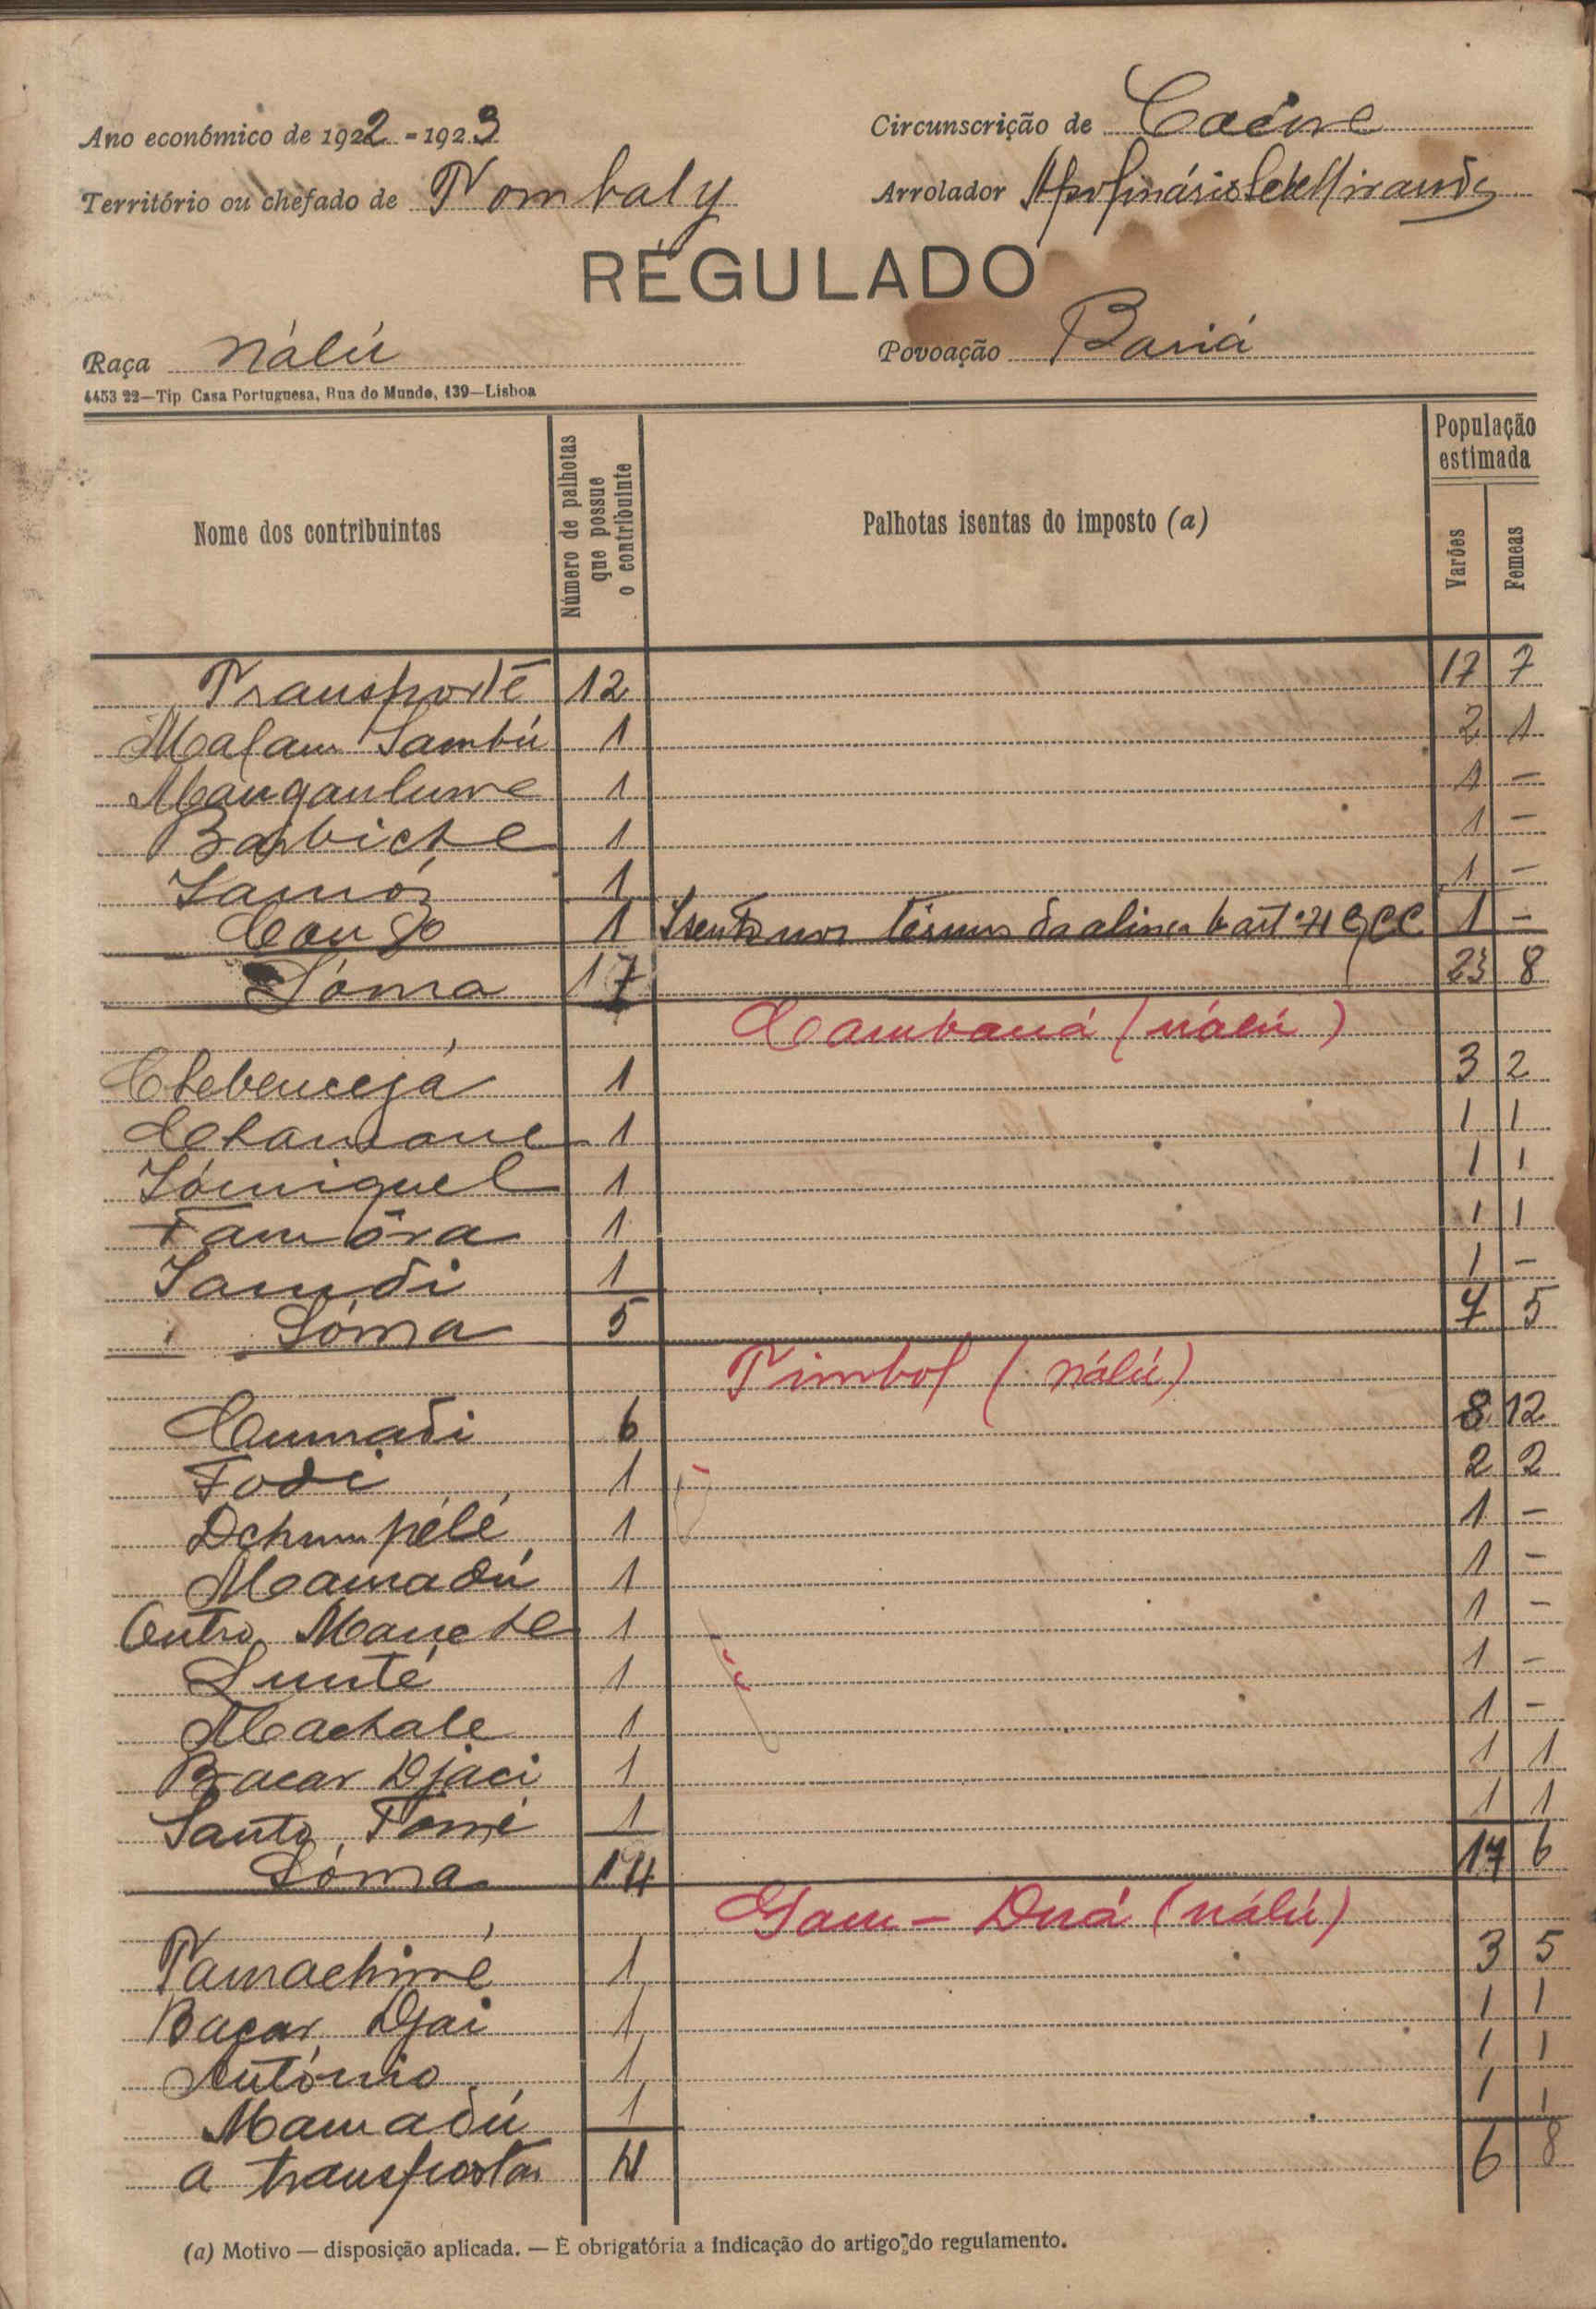 Ano económico de 1922 - 1923
Circunscrição de Cacine
Território ou chefado de Tombaly
Arrolador
RÉGULADO
Raça nálú
Povoação Baniá
4453 22—Tip Casa Portuguesa, Rua do Mundo, 139—Lisboa
Nome dos contribuintes
Número de palhotas que possue o contribuinte
Palhotas isentas do imposto (a)
População estimada
Varões
Femeas
Transporte 12 17 7
Malam Sambú 1 2 1
1 1 -
1 1 -
1 1 -
1 Isento nos têrmos da alinea b art.º 71 1 -
Sôma 17 23 8
Cambaná (nálú)
1 3 2
1 1 1
Sómiquel 1 1 1
Tambôra 1 1 1
Samdi 1 1 -
Sôma 5 7 5
Timbol (nálú)
Cumadi 6 8 12
Fodi 1 2 2
Dchumpélé 1 1 -
Mamadú 1 1 -
Outro 1 1 -
Sunté 1 1 -
Machale 1 1 -
Bacar Djaci 1 1 1
Santo Tomé 1 1 1
Sôma 14 17 6
Gam - Duá (nálú)
Tamachimé 1 3 5
Bacar Djai 1 1 1
António 1 1 1
Mamadú 1 1 1
a transportar 4 6 8
(a) Motivo — disposição aplicada. — É obrigatória a indicação do artigo do regulamento.